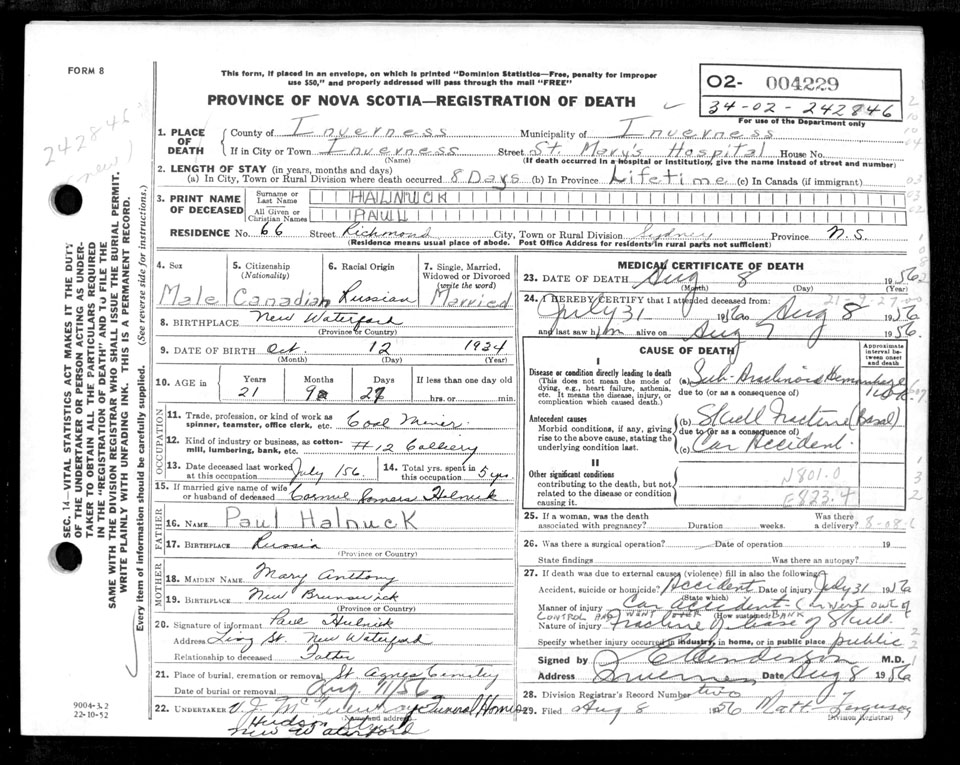 FORM 8
This form, if placed in an envelope, on which is printed "Dominion Statistics—Free, penalty for improper
use $50," and properly addressed will pass through the mail "FREE"
02- 004229
34-02-242846
For use of the Department only
PROVINCE OF NOVA SCOTIA—REGISTRATION OF DEATH
242846
(new)
1. PLACE OF DEATH
County of Inverness Municipality of Inverness
If in City or Town Inverness Street St. Mary's Hospital House No.
(Name) (If death occurred in a hospital or institution, give the name instead of street and number)
2. LENGTH OF STAY (in years, months and days)
(a) In City, Town or Rural Division where death occurred 8 Days (b) In Province Lifetime (c) In Canada (if immigrant)
3. PRINT NAME OF DECEASED
Surname or Last Name HALNUCK
All Given or Christian Names PAUL
RESIDENCE No. 66 Street Richmond City, Town or Rural Division Sydney Province N.S.
(Residence means usual place of abode. Post Office Address for residents in rural parts not sufficient)
4. Sex Male
5. Citizenship (Nationality) Canadian
6. Racial Origin Russian
7. Single, Married, Widowed or Divorced (write the word) Married
8. BIRTHPLACE New Waterford
(Province or Country)
9. DATE OF BIRTH Oct. 12 1934
(Month) (Day) (Year)
10. AGE in Years Months Days If less than one day old
21 9 hrs. or min.
OCCUPATION
11. Trade, profession, or kind of work as spinner, teamster, office clerk, etc. Coal Miner
12. Kind of industry or business, as cotton-mill, lumbering, bank, etc. #12 Colliery
13. Date deceased last worked at this occupation July /56
14. Total yrs. spent in this occupation 5 yrs.
15. If married give name of wife or husband of deceased
FATHER
16. NAME Paul Halnuck
17. BIRTHPLACE Russia
(Province or Country)
MOTHER
18. MAIDEN NAME Mary Anthony
19. BIRTHPLACE New Brunswick
(Province or Country)
20. Signature of informant Paul Hulnick
Address St. New Waterford
Relationship to deceased Father
21. Place of burial, cremation or removal St Agnes Cemetry
Date of burial or removal Aug 11/56
22. UNDERTAKER V. J. Funeral Homes
(Name and address)
Hudson St.
New Waterford
MEDICAL CERTIFICATE OF DEATH
23. DATE OF DEATH Aug 8 1956
(Month) (Day) (Year)
24. I HEREBY CERTIFY that I attended deceased from:
July 31 1956 to Aug 8 1956
and last saw him alive on Aug 7 1956
CAUSE OF DEATH
Approximate interval between onset and death
I
Disease or condition directly leading to death
(This does not mean the mode of dying, e.g., heart failure, asthenia, etc. It means the disease, injury, or complication which caused death.)
(a) Sub-Arachnoid Hemorrhage
due to (or as a consequence of)
Antecedent causes
Morbid conditions, if any, giving rise to the above cause, stating the underlying condition last.
(b) Skull Fracture (Basal)
due to (or as a consequence of)
(c) Car Accident.
II
Other significant conditions
contributing to the death, but not related to the disease or condition causing it.
N801.0
E823.4
25. If a woman, was the death associated with pregnancy? Duration weeks. Was there a delivery?
26. Was there a surgical operation? Date of operation 19
State findings Was there an autopsy?
27. If death was due to external causes (violence) fill in also the following:
Accident, suicide or homicide? Accident Date of injury July 31 1956
(State which)
Manner of injury Car accident - Car went out of
CONTROL AND WENT OVER (How sustained) BANK
Nature of injury Fracture of base of Skull
Specify whether injury occurred in industry, in home, or in public place public
Signed by Henderson M.D.
Address Inverness Date Aug 8 1956
28. Division Registrar's Record Number two
29. Filed Aug 8 1956 Matt. Ferguson
(Division Registrar)
SEC. 14—VITAL STATISTICS ACT MAKES IT THE DUTY
OF THE UNDERTAKER OR PERSON ACTING AS UNDER-
TAKER TO OBTAIN ALL THE PARTICULARS REQUIRED
IN THE "REGISTRATION OF DEATH" AND TO FILE THE
SAME WITH THE DIVISION REGISTRAR WHO SHALL ISSUE THE BURIAL PERMIT.
WRITE PLAINLY WITH UNFADING INK. THIS IS A PERMANENT RECORD.
Every item of information should be carefully supplied. (See reverse side for instructions.)
9004-3.2
22-10-52